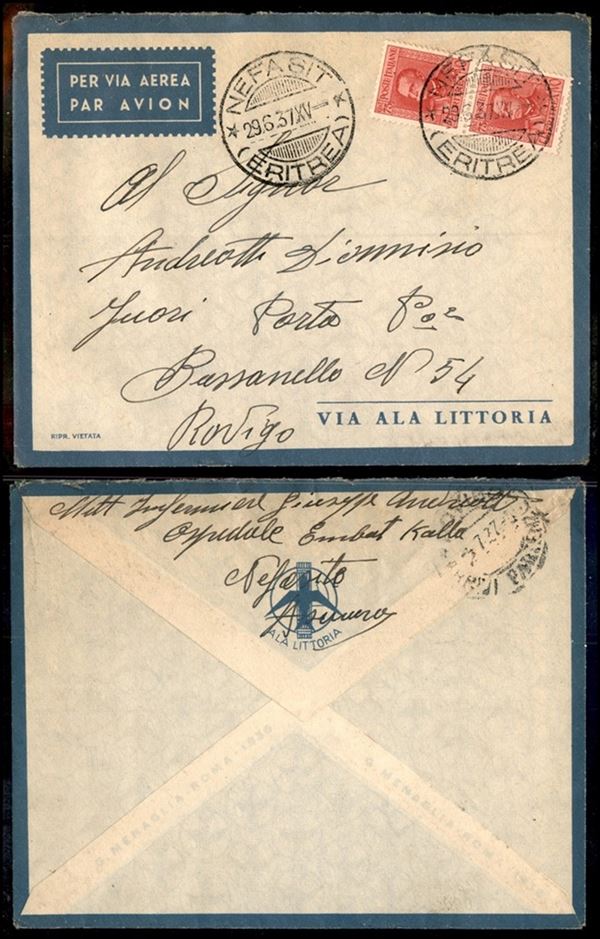 PER VIA AEREA
PAR AVION
NEFASIT
29.6.37.XV
(ERITREA)
POSTE ITALIANE
NEFASIT
(ERITREA)
Al Signor
Andreotti Dionnisio
Fuori Porta Poe
Bassanello N 54
Rovigo
VIA ALA LITTORIA
RIPR. VIETATA
Mitt Infermiere Giuseppe Andreotti
Ospedale Embat Kalla
Nefasito
Asmara
ALA LITTORIA
G. MENAGLIA - ROMA - 1936
G. MENAGLIA - ROMA - 1936